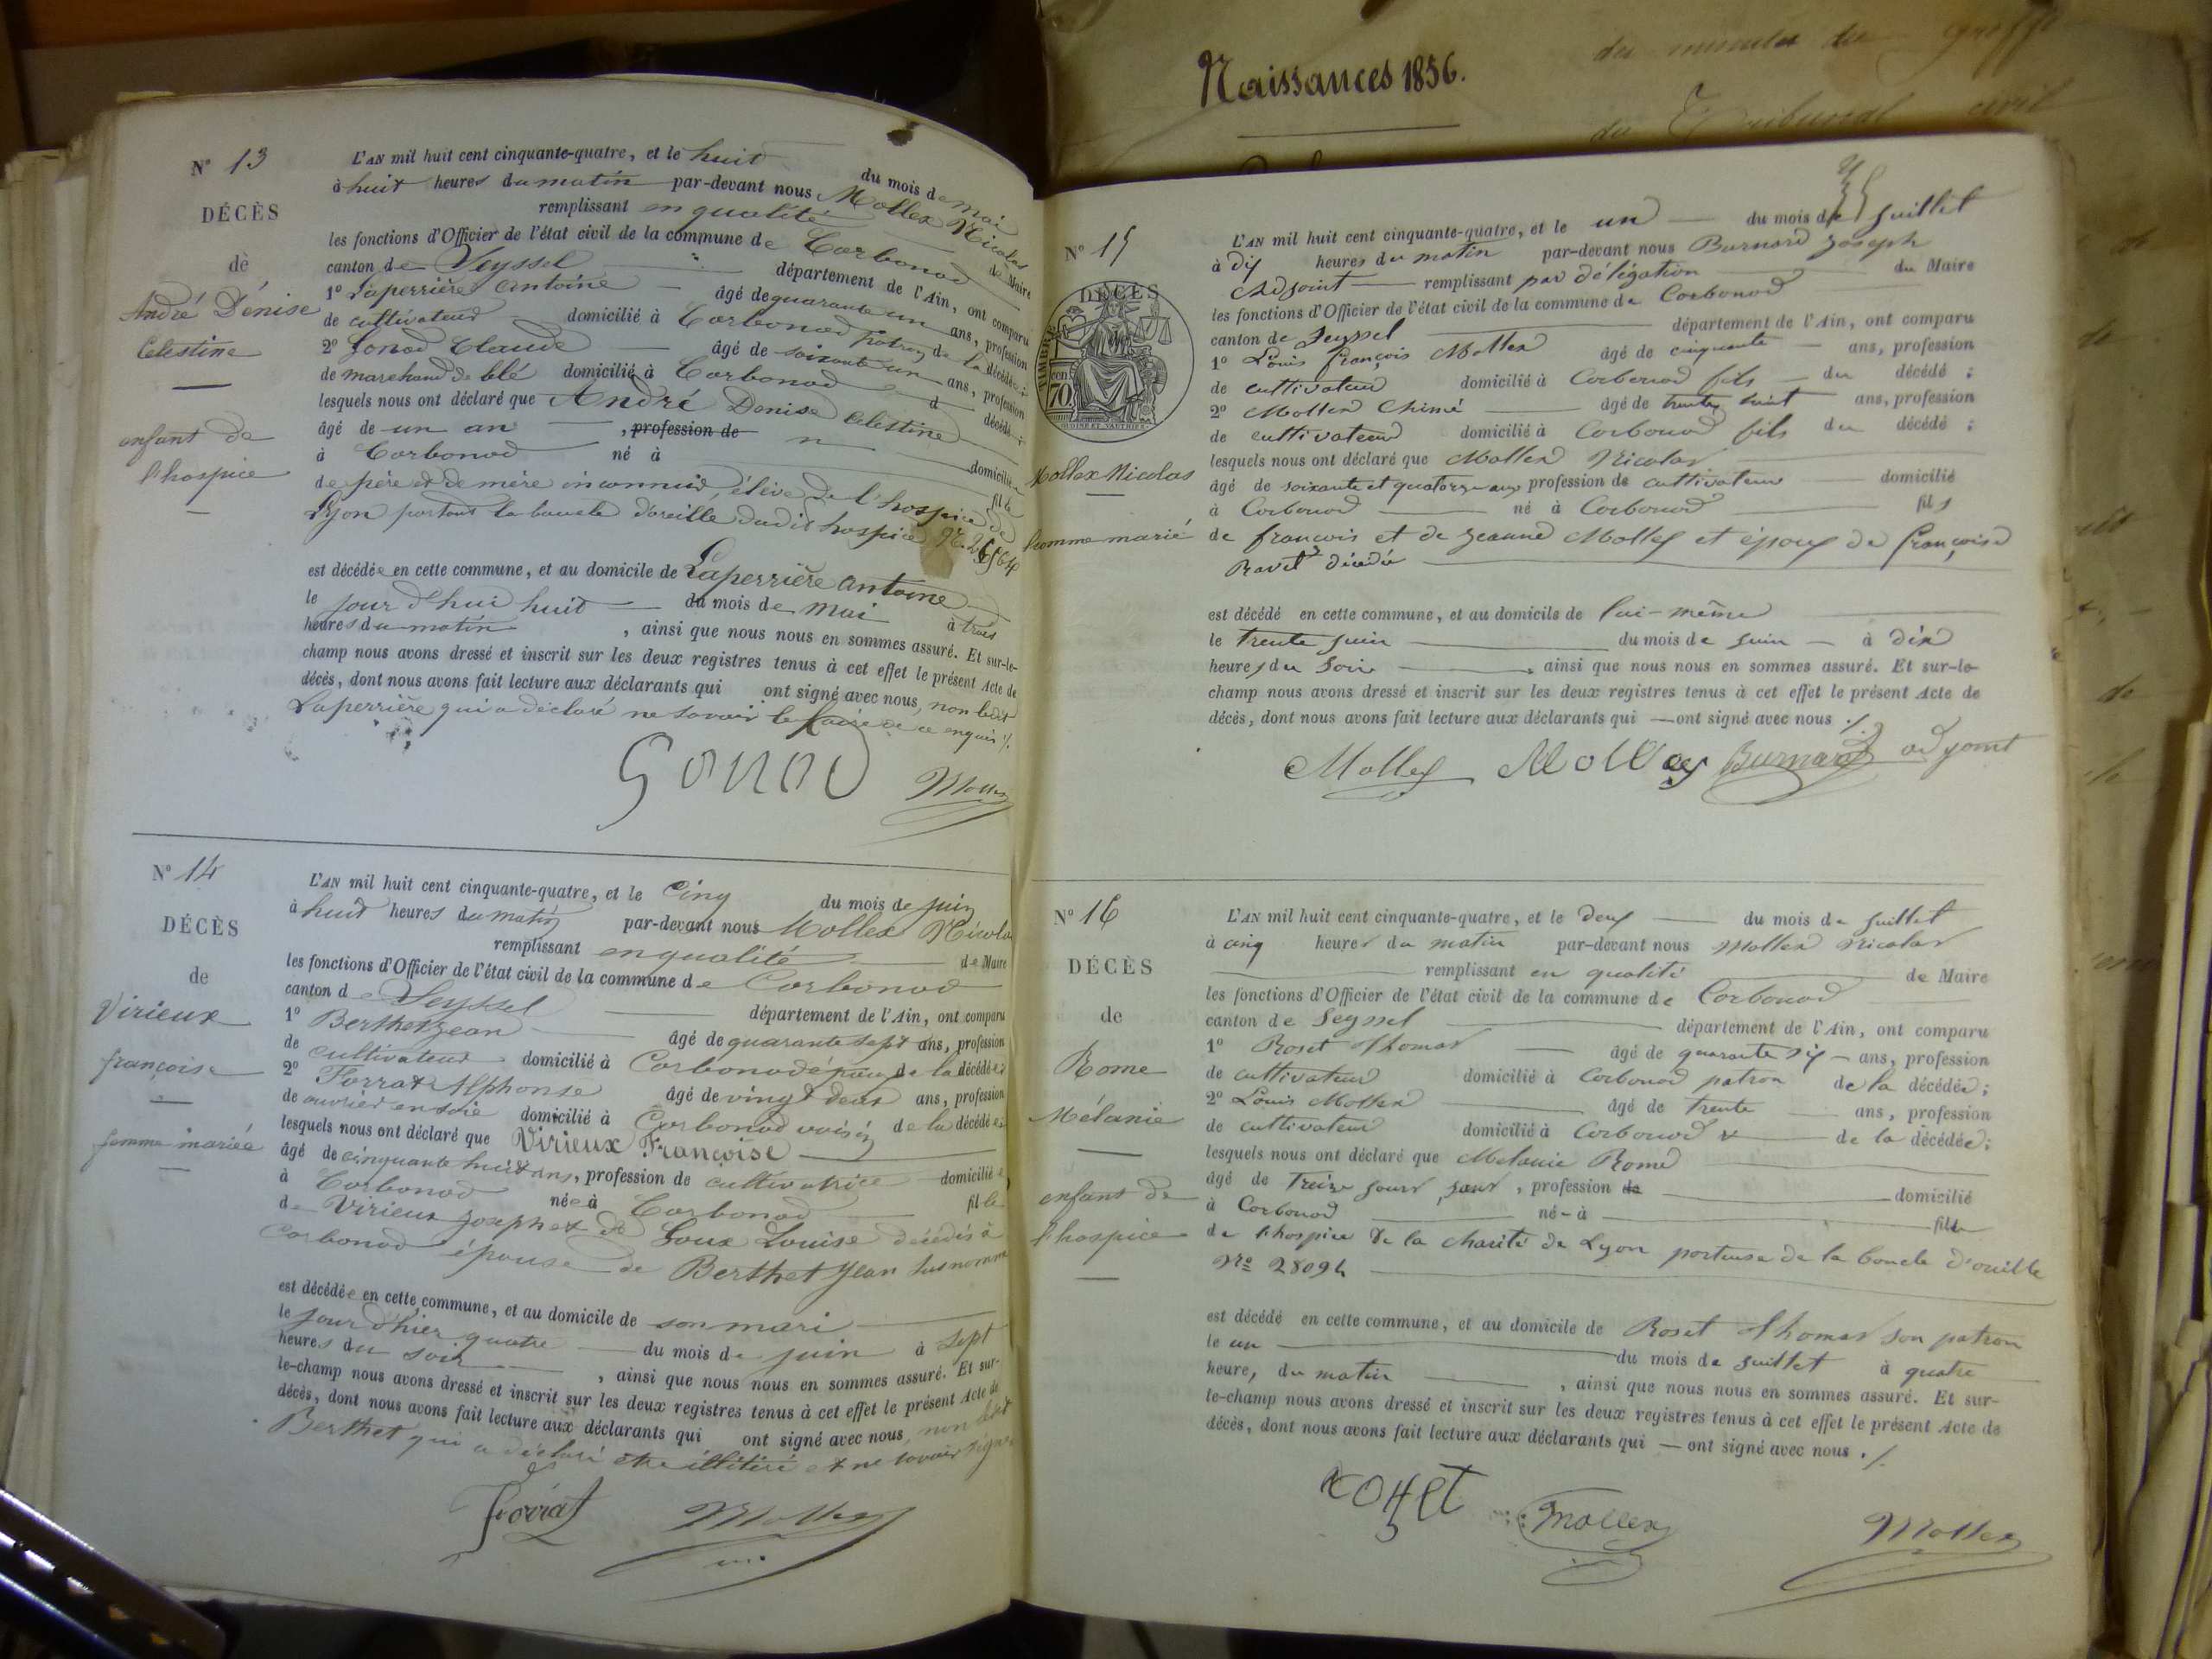 Naissances 1856.
des minutes du greffe
du Tribunal civil
N° 13
DÉCÈS
de
André Dénise
Celestine
enfant de
l'hospice
L'AN mil huit cent cinquante-quatre, et le huit du mois de mai
à huit heures du matin par-devant nous Mollex Nicolas
remplissant en qualité de Maire
les fonctions d'Officier de l'état civil de la commune de Corbonod
canton de Seyssel département de l'Ain, ont comparu
1° Laperrière Antoine âgé de quarante un ans, profession
de cultivateur domicilié à Corbonod patron de la décédée;
2° Gonod Claude âgé de soixante un ans, profession
de marchand de blé domicilié à Corbonod d décédé;
lesquels nous ont déclaré que André Denise Celestine
âgé de un an , profession de n domiciliée
à Corbonod né à fille
de père et de mère inconnus, élève de l'hospice de
Lyon portant la boucle d'oreille dudit hospice N.
est décédée en cette commune, et au domicile de Laperrière Antoine
le jour d'hui huit du mois de mai à trois
heures du matin , ainsi que nous nous en sommes assuré. Et sur-le-
champ nous avons dressé et inscrit sur les deux registres tenus à cet effet le présent Acte de
décès, dont nous avons fait lecture aux déclarants qui ont signé avec nous, non ledit
Laperrière qui a déclaré ne savoir le faire de ce enquis ./.
Gonod Mollex
N° 14
DÉCÈS
de
Virieux
françoise
femme mariée
L'AN mil huit cent cinquante-quatre, et le cinq du mois de juin
à huit heures du matin par-devant nous Mollex Nicolas
remplissant en qualité de Maire
les fonctions d'Officier de l'état civil de la commune de Corbonod
canton de Seyssel département de l'Ain, ont comparu
1° Berthet Jean âgé de quarante sept ans, profession
de cultivateur domicilié à Corbonod époux de la décédée;
2° Forrat Alphonse âgé de vingt deux ans, profession
de ouvrier en soie domicilié à Corbonod voisin de la décédée;
lesquels nous ont déclaré que Virieux Françoise
âgé de cinquante huit ans, profession de cultivatrice domiciliée
à Corbonod née à Corbonod fille
de Virieux Joseph et de Loux Louise décédés à
Corbonod épouse de Berthet Jean susnommé
est décédée en cette commune, et au domicile de son mari
le jour d'hier quatre du mois de juin à sept
heures du soir , ainsi que nous nous en sommes assuré. Et sur-
le-champ nous avons dressé et inscrit sur les deux registres tenus à cet effet le présent Acte de
décès, dont nous avons fait lecture aux déclarants qui ont signé avec nous, non ledit
Berthet qui a déclaré être illitéré et ne savoir signer
Forrat Mollex
N° 15
DÉCÈS
TIMBRE
70
Mollex Nicolas
homme marié
L'AN mil huit cent cinquante-quatre, et le un du mois de Juillet
à dix heures du matin par-devant nous Burnard Joseph
Adjoint remplissant par délégation du Maire
les fonctions d'Officier de l'état civil de la commune de Corbonod
canton de Seyssel département de l'Ain, ont comparu
1° Louis françois Mollex âgé de cinquante ans, profession
de cultivateur domicilié à Corbonod fils du décédé;
2° Mollex Chimé âgé de trente huit ans, profession
de cultivateur domicilié à Corbonod fils du décédé;
lesquels nous ont déclaré que Mollex Nicolas
âgé de soixante et quatorze ans profession de cultivateur domicilié
à Corbonod né à Corbonod fils
de francois et de Jeanne Mollex et époux de françoise
Ravet décédée
est décédé en cette commune, et au domicile de lui-même
le trente juin du mois de juin à dix
heures du soir , ainsi que nous nous en sommes assuré. Et sur-le-
champ nous avons dressé et inscrit sur les deux registres tenus à cet effet le présent Acte de
décès, dont nous avons fait lecture aux déclarants qui ont signé avec nous ./.
Mollex Mollex Burnard adjoint
N° 16
DÉCÈS
de
Rome
Mélanie
enfant de
l'hospice
L'AN mil huit cent cinquante-quatre, et le deux du mois de Juillet
à cinq heures du matin par-devant nous Mollex Nicolas
remplissant en qualité de Maire
les fonctions d'Officier de l'état civil de la commune de Corbonod
canton de Seyssel département de l'Ain, ont comparu
1° Roset Thomas âgé de quarante six ans, profession
de cultivateur domicilié à Corbonod patron de la décédée;
2° Louis Mollex âgé de trente ans, profession
de cultivateur domicilié à Corbonod de la décédée;
lesquels nous ont déclaré que Mélanie Rome
âgé de Treize jours , profession de domicilié
à Corbonod né à fille
de l'hospice de la charité de Lyon porteuse de la boucle d'oreille
N° 28094
est décédé en cette commune, et au domicile de Roset Thomas son patron
le un du mois de Juillet à quatre
heure, du matin , ainsi que nous nous en sommes assuré. Et sur-
le-champ nous avons dressé et inscrit sur les deux registres tenus à cet effet le présent Acte de
décès, dont nous avons fait lecture aux déclarants qui ont signé avec nous ./.
roset mollex Mollex